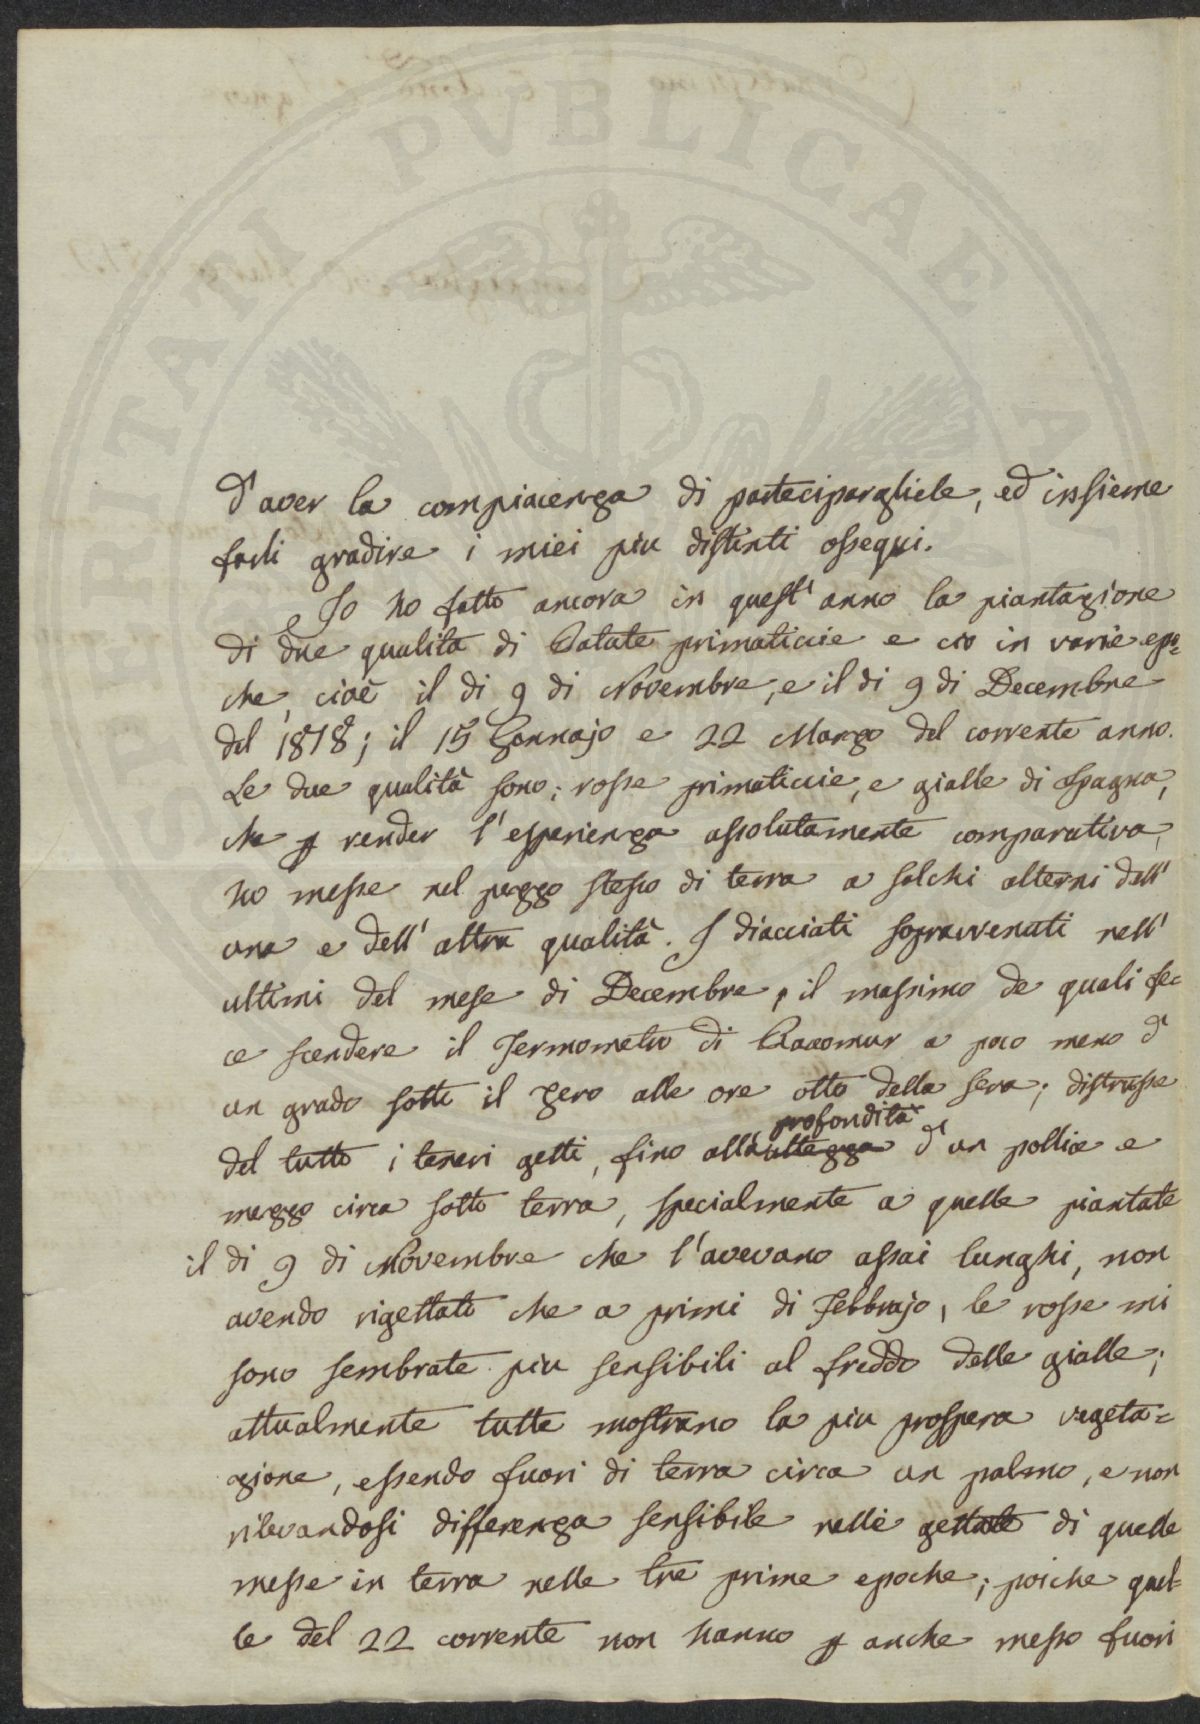 PROSPERITATI PVBLICAE AV
d'aver la compiacenza di partecipargliele, ed insieme
farli gradire i miei piu distinti ossequi.
Io ho fatto ancora in quest'anno la piantagione
di due qualità di Patate primaticcie e cio in varie epo=
che, cioè il di 9 di Novembre, e il di 9 di Decembre
del 1818; il 15 Gennajo e 22 Marzo del corrente anno.
Le due qualità sono; rosse primaticcie, e gialle di Spagna,
che p render l'esperienza assolutamente comparativa,
ho messe nel pezzo stesso di terra a solchi alterni dell'
una e dell'altra qualità. I diacciati sopravvenuti nell'
ultimi del mese di Decembre, il massimo de quali fe=
ce scendere il Termometro di Reaomur a poco meno d'
un grado sotto il zero alle ore otto della sera; distrusse
profondità
del tutto i teneri getti, fino alla altezza d'un pollice e
mezzo circa sotto terra, specialmente a quelle piantate
il di 9 di Novembre che l'avevano assai lunghi, non
avendo rigettato che a primi di Febbrajo, le rosse mi
sono sembrate piu sensibili al freddo delle gialle;
attualmente tutte mostrano la piu prospera vegeta=
zione, essendo fuori di terra circa un palmo, e non
rilevandosi differenza sensibile nelle gettate di quelle
messe in terra nelle tre prime epoche; poiche quel=
le del 22 corrente non hanno p anche messo fuori